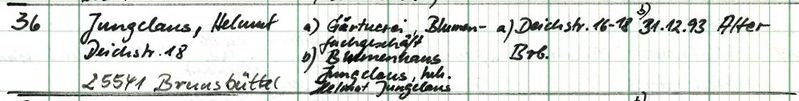 36 Jungclaus, Helmut a) Gärtnerei Blumen- a) Deichstr. 16-18 b) 31.12.93 Alter
Deichstr. 18 fachgeschäft Brb.
b) Blumenhaus
25541 Brunsbüttel Jungclaus, Inh.
Helmut Jungclaus